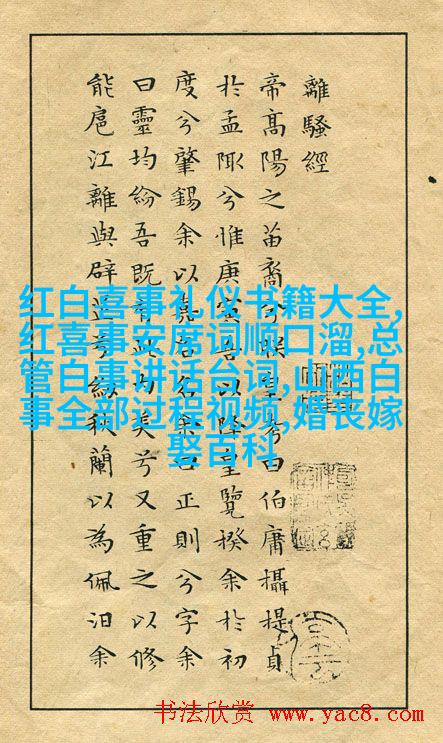 離騷經
帝高陽之苗裔兮朕皇考曰伯庸攝提貞
於孟陬兮惟庚寅吾以降皇覽揆余於初
度兮肇錫余以嘉名名余曰正則兮字余
曰靈均紛吾既有此內美兮又重之以修
能扈江離與辟芷兮紉秋蘭以為佩汩余
红白喜事礼仪书籍大全,
红喜事安席词顺口溜,总
管白事讲话台词,山西白
事全部过程视频,婚丧嫁
娶百科
书法欣赏 www.yac8.com